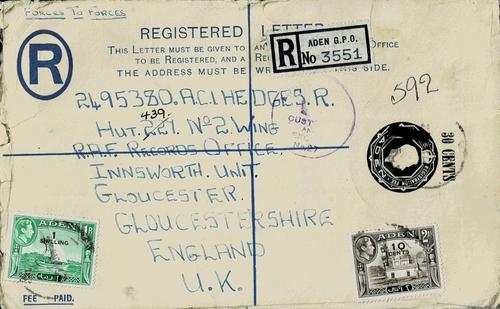 FORCES TO FORCES
REGISTERED LETTER
THIS LETTER MUST BE GIVEN TO AN OFFICE
TO BE REGISTERED, AND A
THE ADDRESS MUST BE THIS SIDE.
R
R ADEN G.P.O.
No 3551
592
2495380. A.C.1 HEDGES. R.
439
HUT. 221. No 2. WING
R.A.F. RECORDS OFFICE.
INNSWORTH. UNIT.
GLOUCESTER.
GLOUCESTERSHIRE
ENGLAND
U.K.
CUST
ADEN
REGISTRATION
30 CENTS
ADEN
1
SHILLING
ADEN
10
CENTS
FEE PAID.